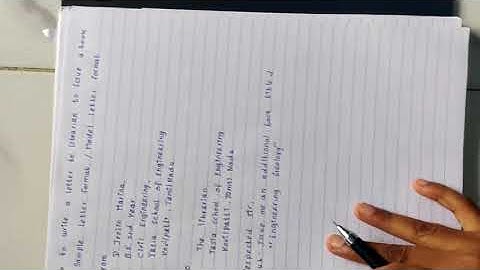 to write a letter to librarian to issue a book
Sample letter format / Model letter format.
From
D. Jenita Marina,
B.E 2nd year,
Civil Engineering,
Tasla School of Engineering
Kovilpatti, TamilNadu
The librarian
Tasla School of Engineering
Kovilpatti, Tamil Nadu
Respected Sir,
Sub: Issue me an additional book
"Engineering Geology"